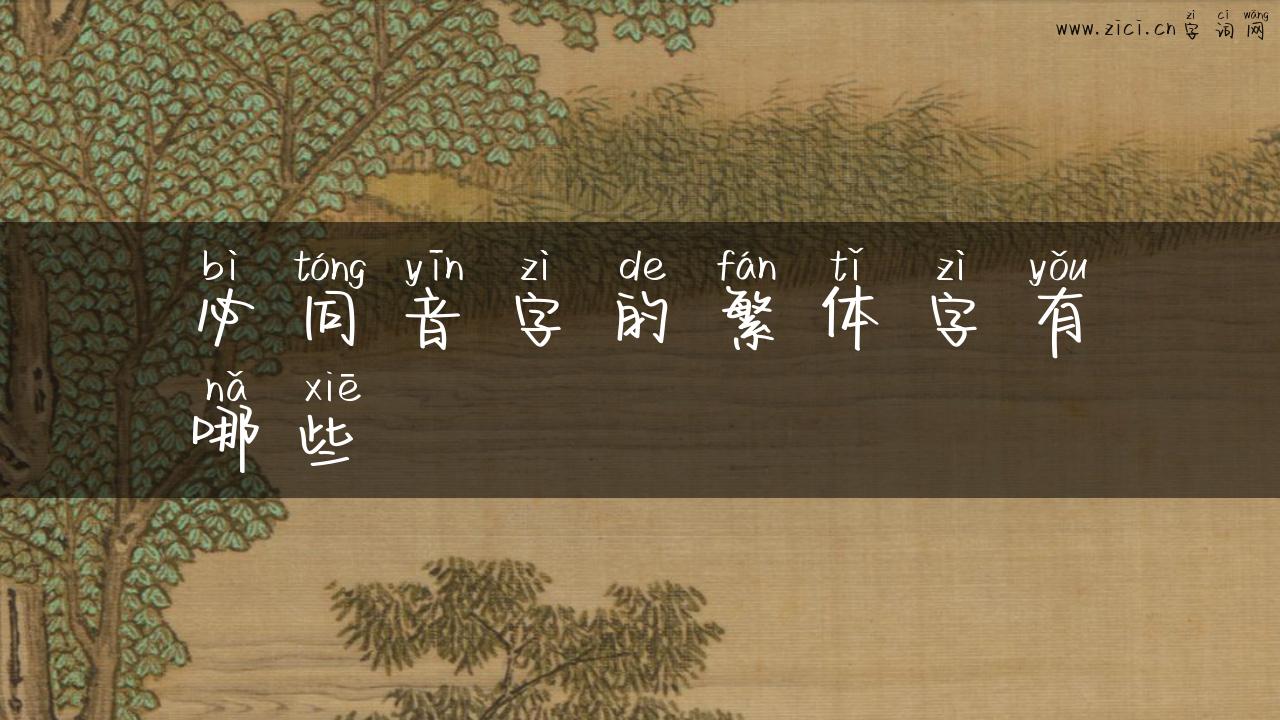 zì cí wǎng
www.zici.cn字词网
bì tóng yīn zì de fán tǐ zì yǒu
必同音字的繁体字有
nǎ xiē
哪些